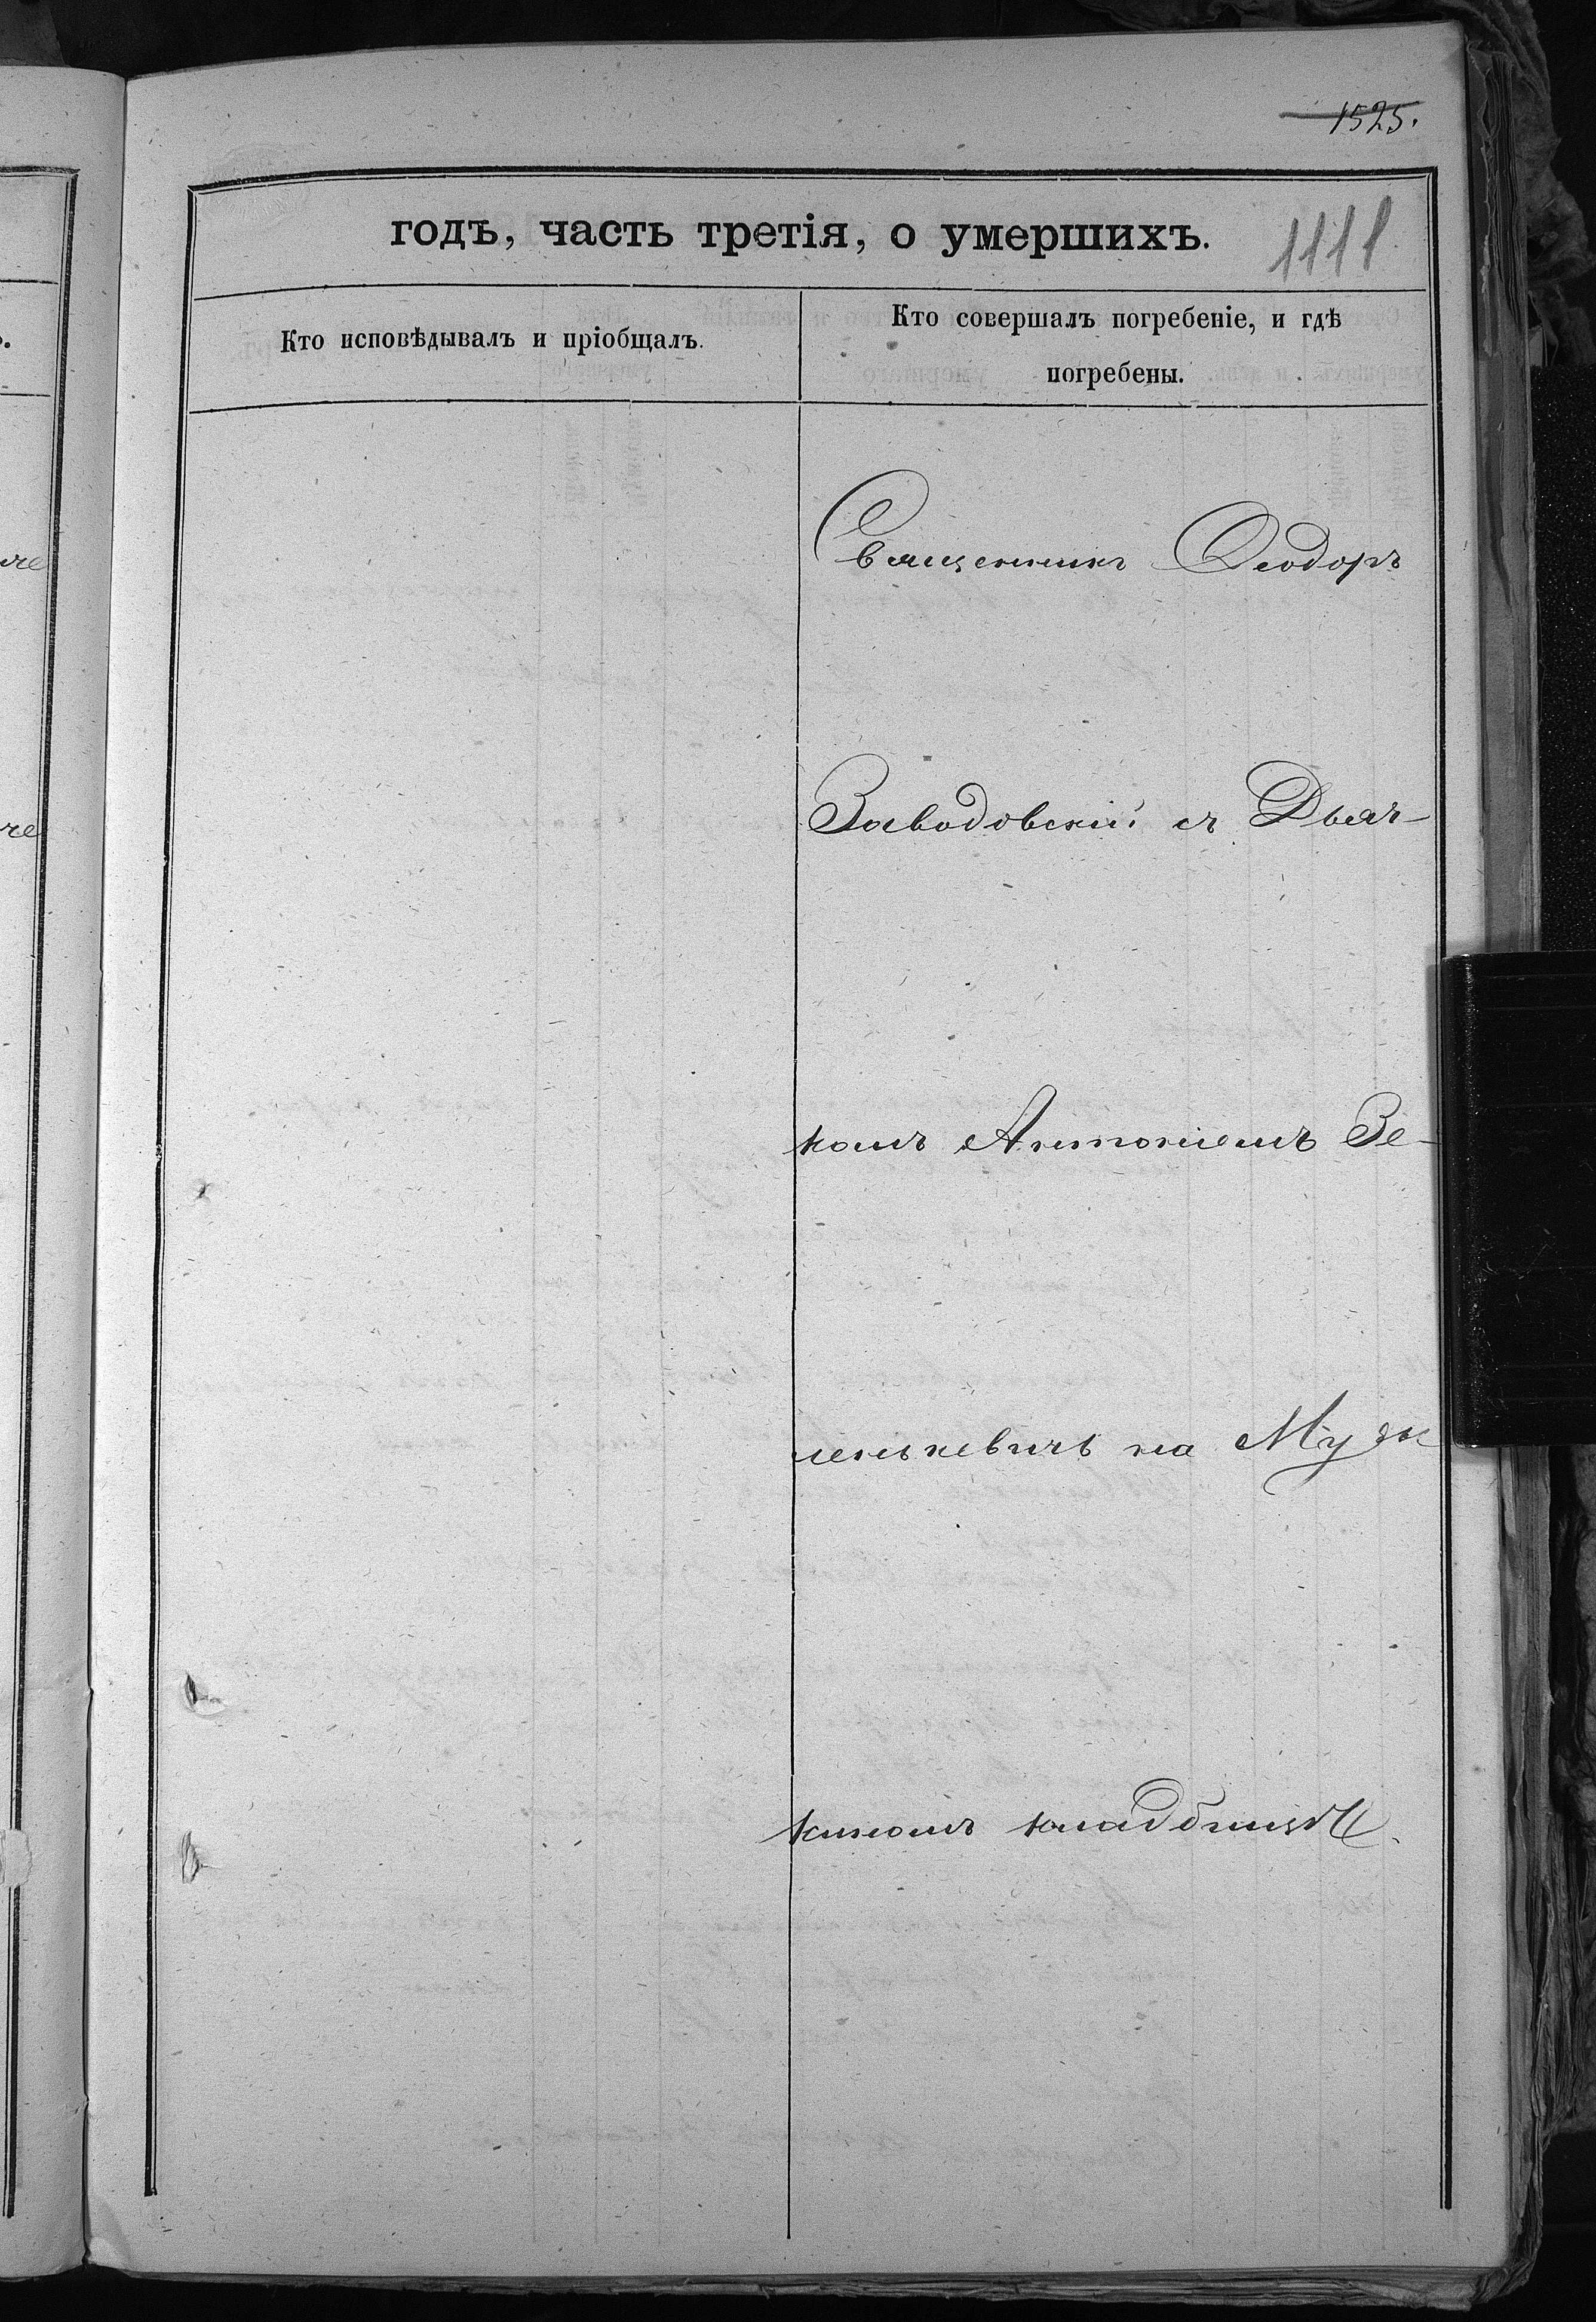 1525.
годъ, часть третія, о умершихъ.
1111
Кто исповѣдывалъ и пріобщалъ.
Кто совершалъ погребеніе, и гдѣ
погребены.
Священникъ Ѳеодоръ
Заводовскій съ Дьяч-
комъ Антоніемъ Зе-
ленкевичъ на
кладбищѣ.